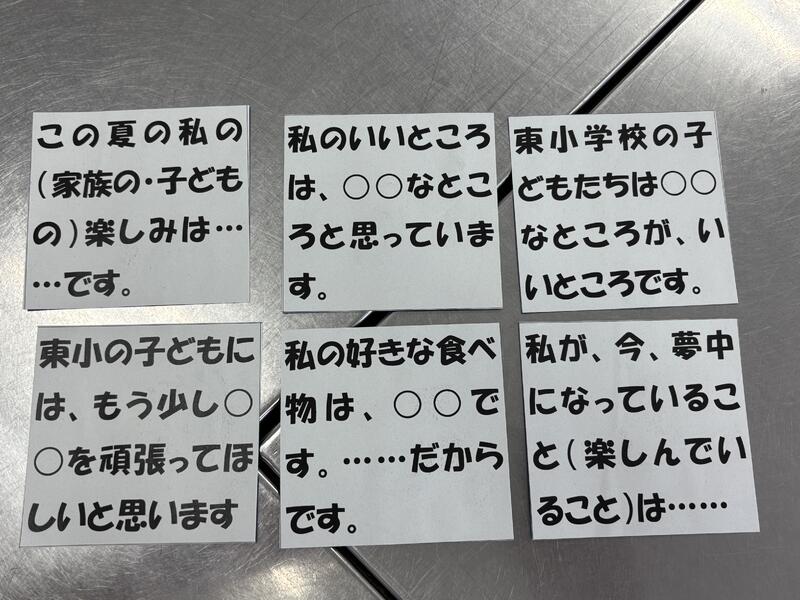 この夏の私の
(家族の・子ども
の)楽しみは…
…です。
私のいいところ
は、○○なとこ
ろと思っていま
す。
東小学校の子
どもたちは○○
なところが、い
いところです。
東小の子どもに
は、もう少し○
○を頑張ってほ
しいと思います
私の好きな食べ
物は、○○で
す。……だから
です。
私が、今、夢中
になっているこ
と(楽しんでい
ること)は……